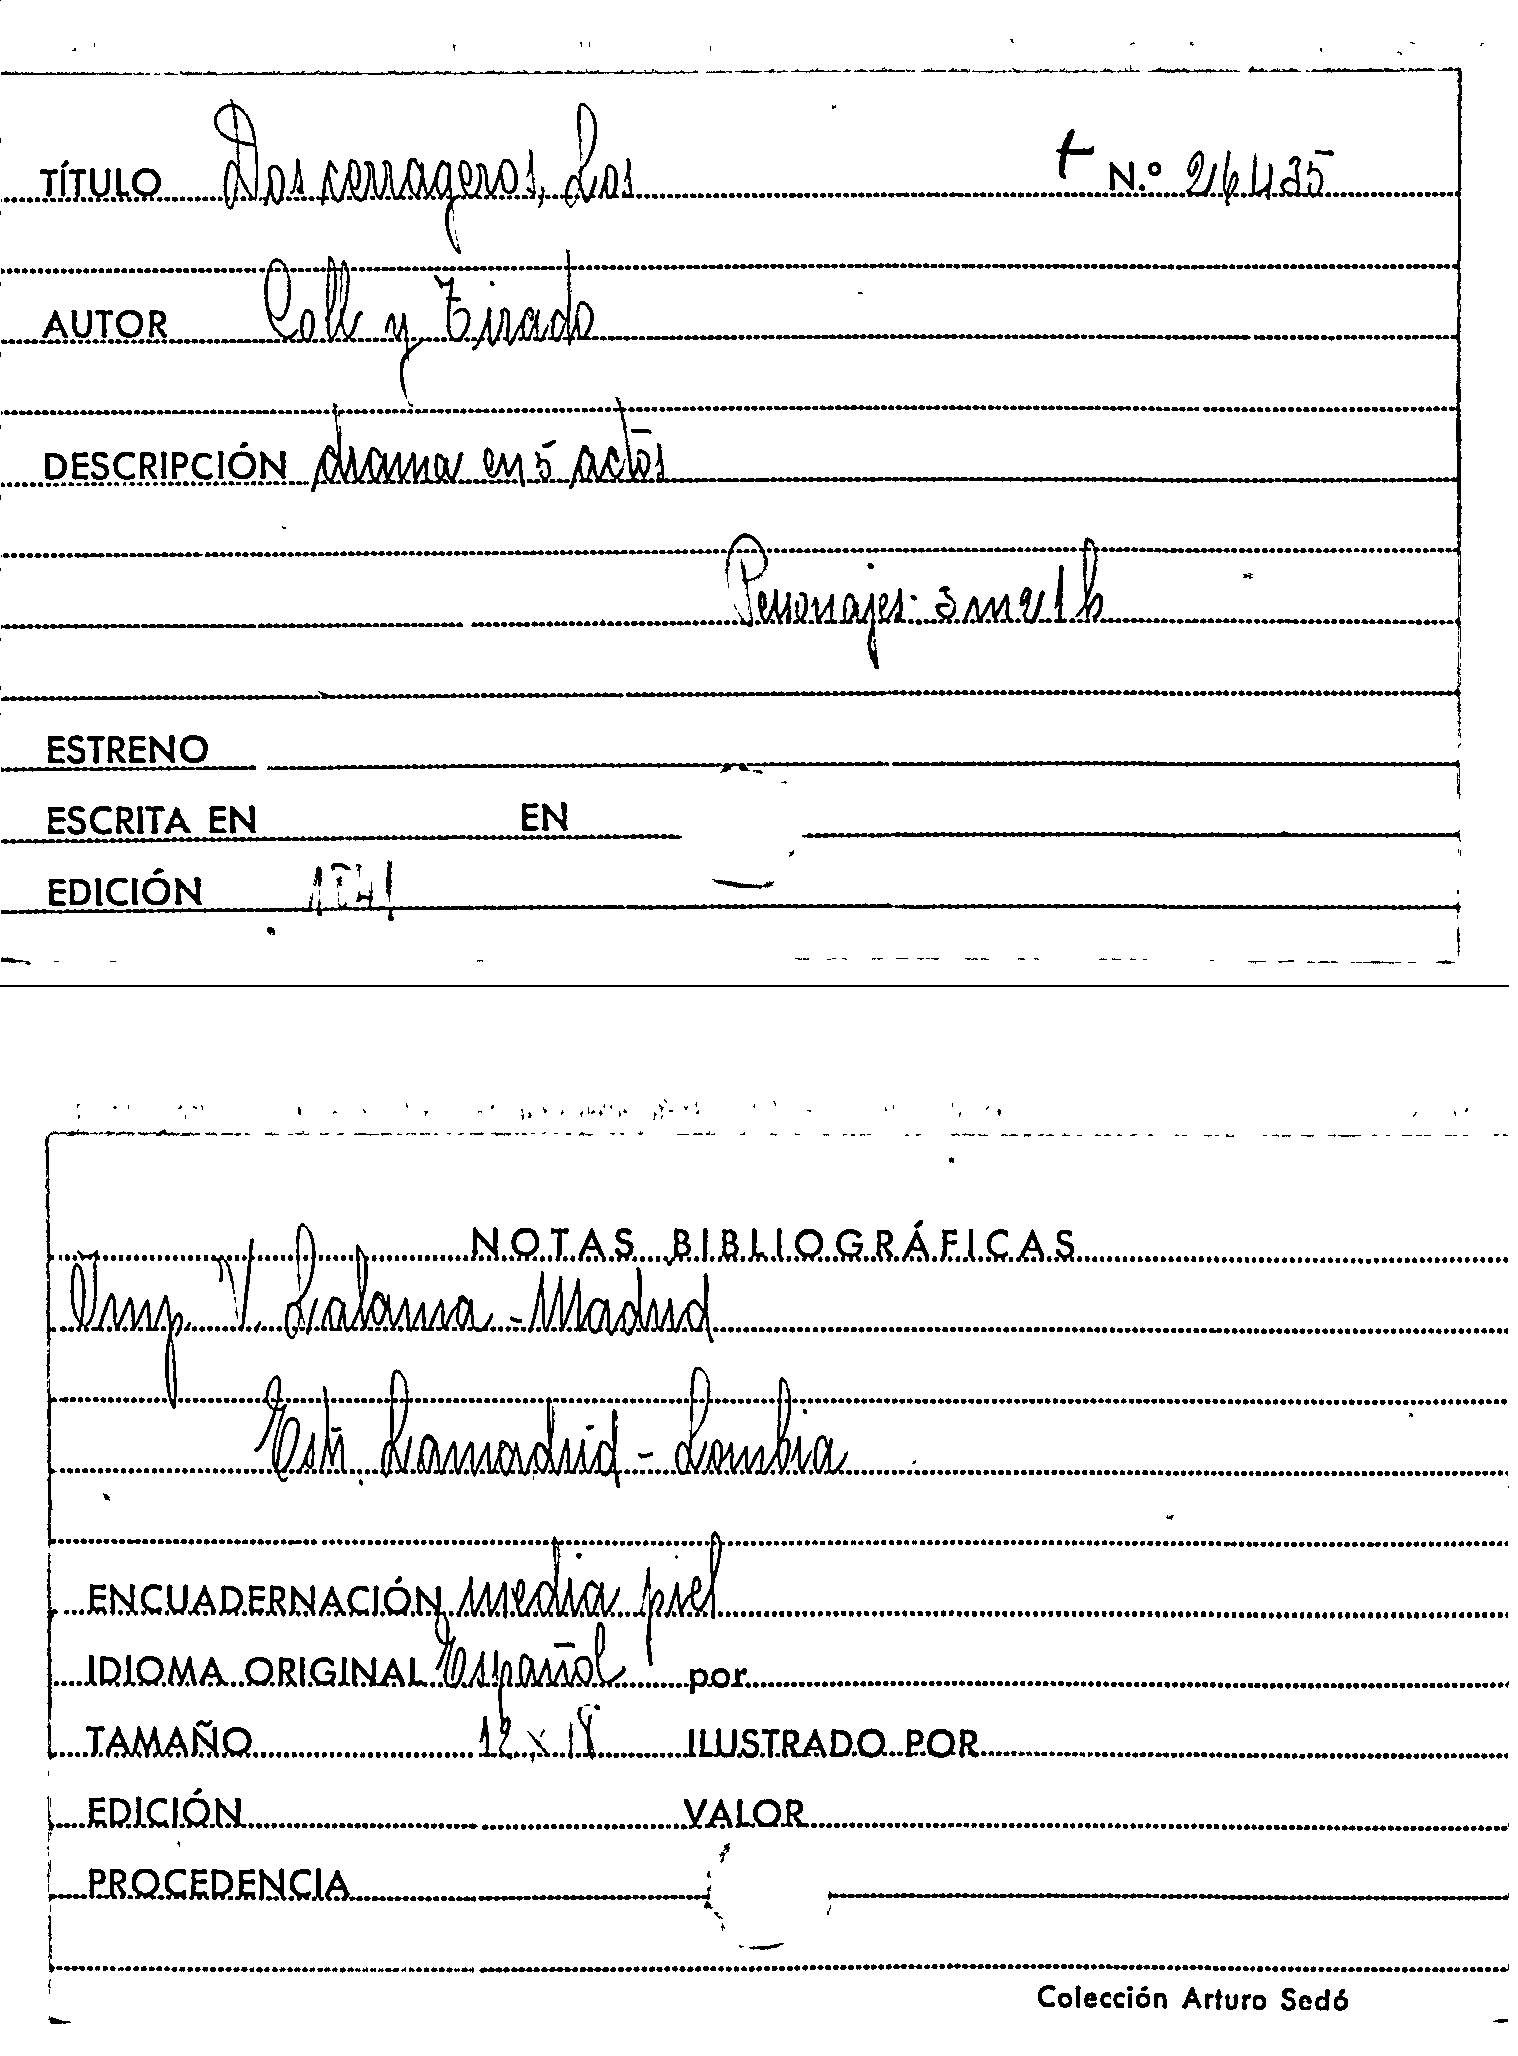 TÍTULO Dos cerrageros, Los + N.º 26435
AUTOR Coll y Tirado
DESCRIPCIÓN drama en 5 actos
Personajes: 3 m 21 h
ESTRENO
ESCRITA EN EN
EDICIÓN
NOTAS BIBLIOGRÁFICAS
Imp. V. Lalama - Madrid
Estr. Lamadrid - Lombia
ENCUADERNACIÓN media piel
IDIOMA ORIGINAL Español por
TAMAÑO 12 x 18 ILUSTRADO POR
EDICIÓN VALOR
PROCEDENCIA
Colección Arturo Sedó